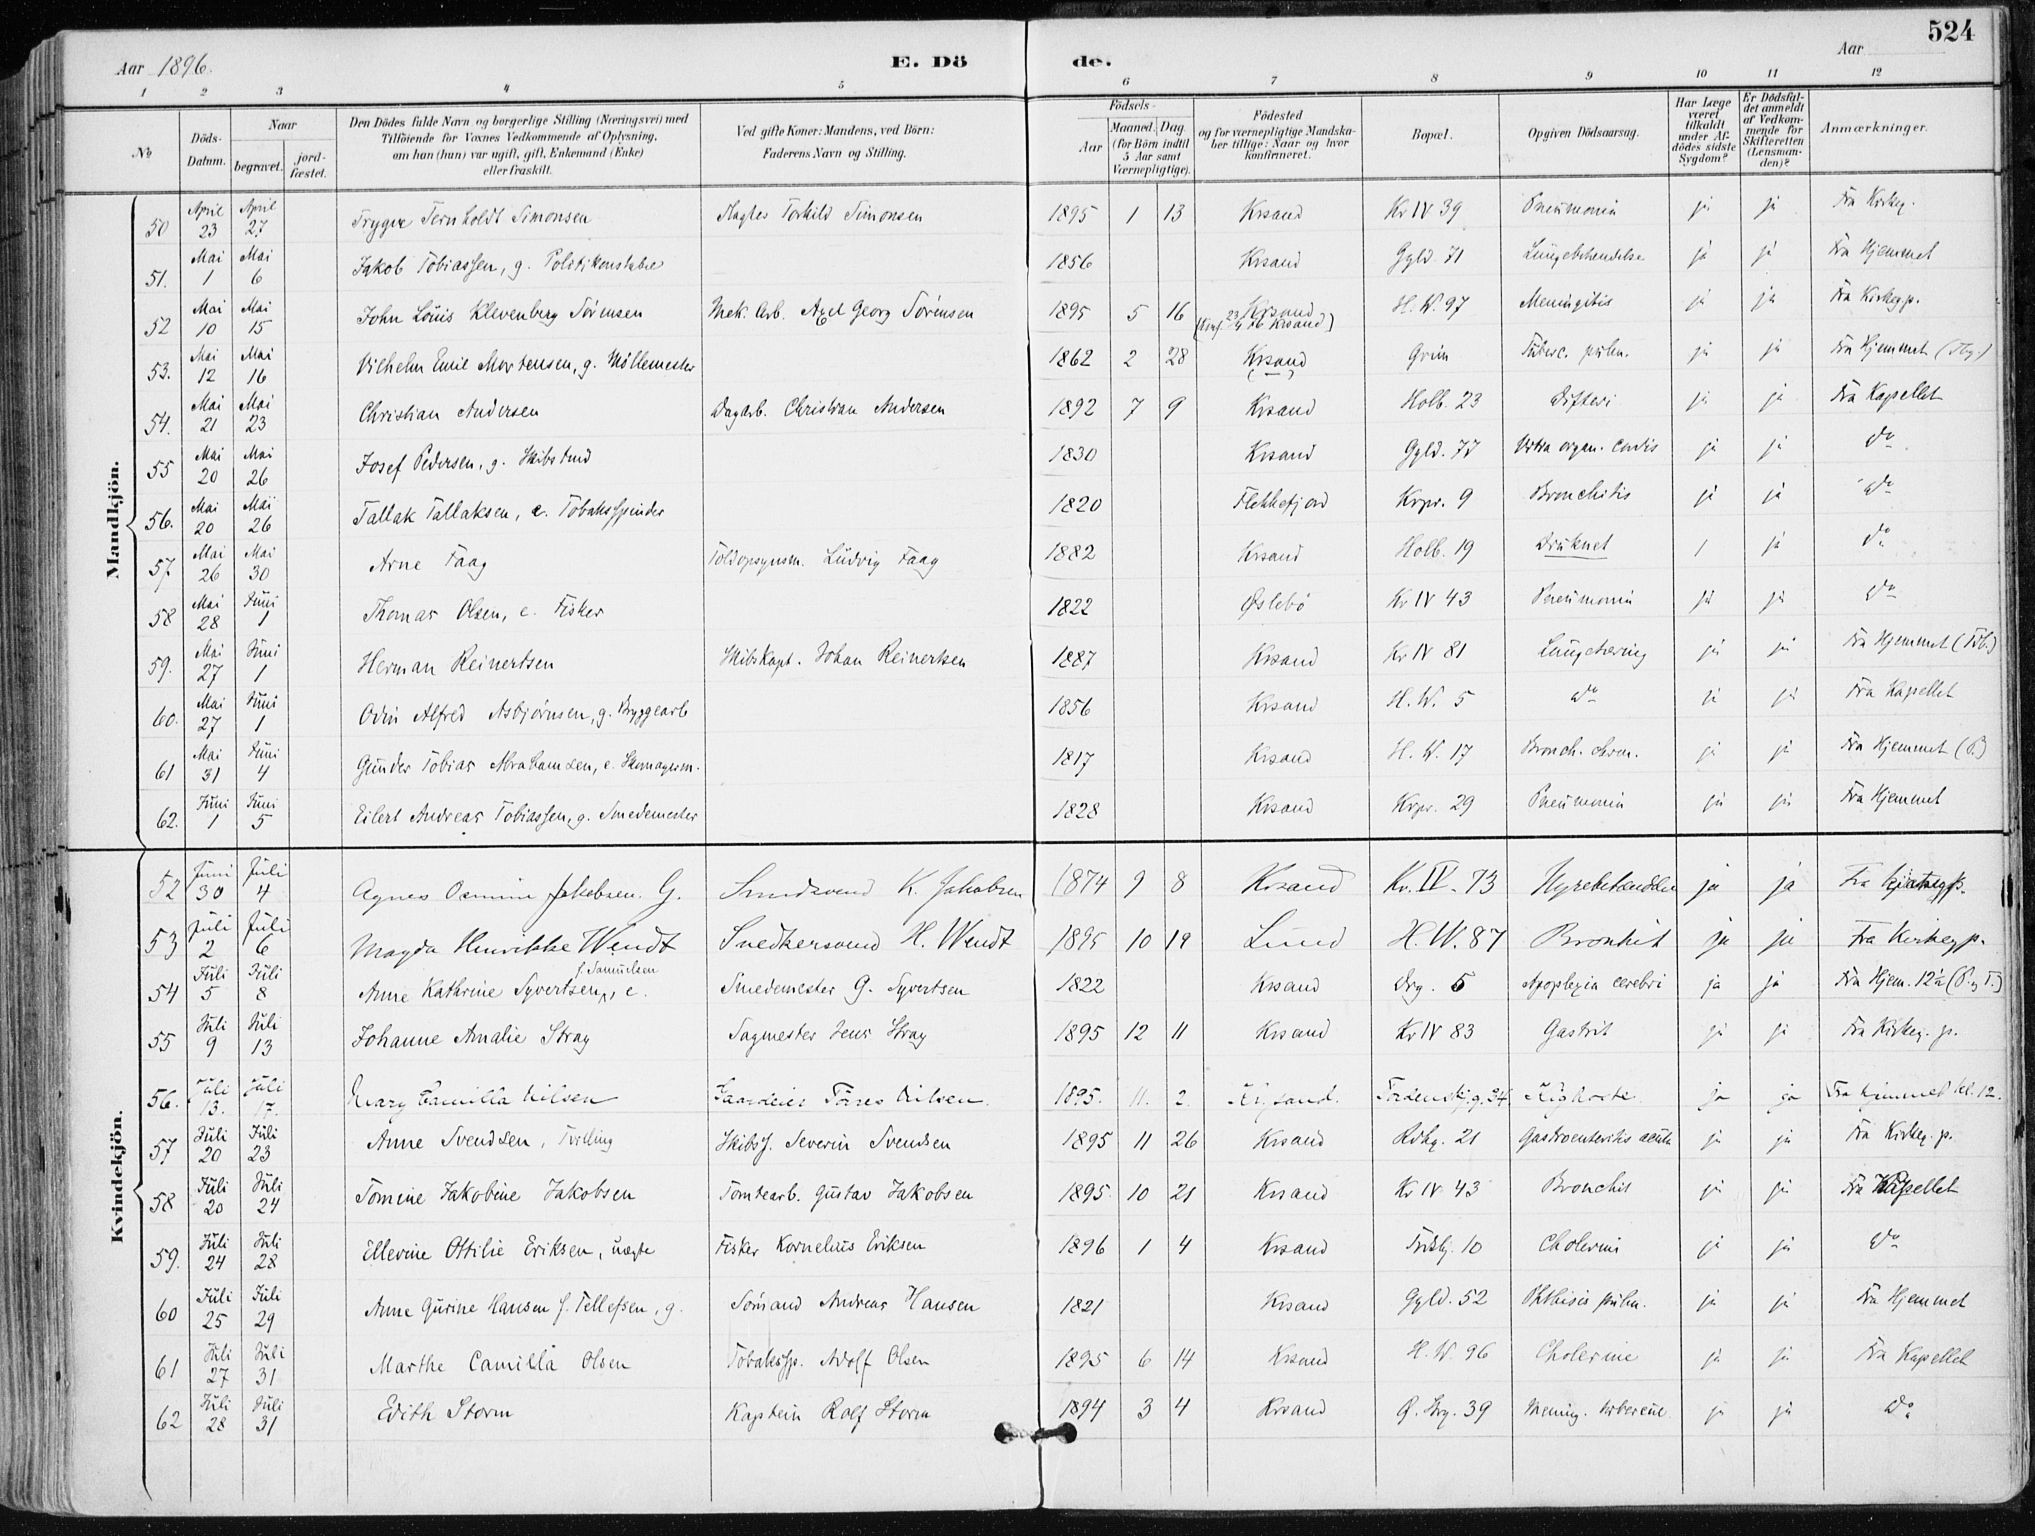 524
Aar 1896. E. Dö de. Aar
1 2 3 4 5 6 7 8 9 10 11 12
No
Döds-Datum.
Naar
begravet. jord-fæstet.
Den Dödes fulde Navn og borgerlige Stilling (Næringsvei) med
Tilföiende for Voxnes Vedkommende af Oplysning,
om han (hun) var ugift, gift, Enkemand (Enke)
eller fraskilt.
Ved gifte Koner: Mandens, ved Börn:
Faderens Navn og Stilling.
Födsels-
Aar
Maaned. Dag.
(for Börn indtil
5 Aar samt
Værnepligtige).
Födested
og for værnepligtige Mandska-
ber tillige: Naar og hvor
konfirmeret.
Bopæl.
Opgiven Dödsaarsag.
Har Læge
været
tilkaldt
under Af-
dödes sidste
Sygdom?
Er Dödsfal-
det anmeldt
af Vedkom-
mende for
Skifteretten
(Lensman-
den)?
Anmærkninger.
Mandkjön.
50 April 23 April 27 Trygve Ternholdt Simonsen Torkild Simonsen 1895 1 13 Krsand Kv IV 39 Pneumonia ja ja Fra Kirkeg.
51. Mai 1 Mai 6 Jakob Tobiassen, g. Politikonstabel 1856 Krsand Gyld. 71 Lungebetændelse ja ja Fra Hjemmet
52 Mai 10 Mai 15 John Louis Klevenberg Sørensen Mek. Arb. Axel Georg Sørensen 1895 5 16 Krsand H. W. 97 Meningitis ja ja Fra Kirkegp.
53. Mai 12 Mai 16 Vilhelm Emil Mortensen, g. Møllemester 1862 2 28 Krsand Grim Tuberc. pulm. ja ja Fra Hjemmet
54. Mai 21 Mai 23 Christian Andersen Dagarb. Christian Andersen 1892 7 9 Krsand Holb. 23 Difteri ja ja Fra Kapellet
55 Mai 20 Mai 26 Josef Pedersen, g. Skibstmd 1830 Krsand Gyld. 77 Vitia organ. cordis ja ja do
56. Mai 20 Mai 26 Tallak Tallaksen, e. Tobaksspinder 1820 Flekkefjord Kvpr. 9 Bronchitis ja ja do
57 Mai 26 Mai 30 Arne Faag Toldopsynsm. Ludvig Faag 1882 Krsand Holb. 19 Druknet / ja do
58 Mai 28 Juni 1 Thomas Olsen, e. Fisker 1822 Øslebö Kv IV 43 Pneumonia ja ja do
59. Mai 27 Juni 1 Herman Reinertsen Skibskapt. Johan Reinertsen 1887 Krsand Kv IV 81 Lungetæring ja ja Fra Hjemmet
60. Mai 27 Juni 1 Odin Alfred Asbjørnsen, g. Bryggearb 1856 Krsand H. W. 5 do ja ja Fra Kapellet
61 Mai 31 Juni 4 Gunder Tobias Abrahamsen, e. Skomagerm. 1817 Krsand H. W. 17 Bronch. chron. ja ja Fra Hjemmet (P.)
62. Juni 1 Juni 5 Eilert Andreas Tobiassen, g. Smedemester 1828 Krsand Kvpr. 29 Pneumonia ja ja Fra Hjemmet
Kvindekjön.
52 Juni 30 Juli 4 Agnes Jakobsen. G. K. Jakobsen 1874 9 8 Krsand Kv. IV. 73 Nyrebetændelse ja ja Fra
53 Juli 2 Juli 6 Magda Henrikke Wendt Snedkersvend H. Wendt 1895 10 19 Lund H. W. 87 Bronkit ja ja Fra Kirkegp.
54 Juli 5 Juli 8 Anne Kathrine Syvertsen, f. Samuelsen e. Smedemester G. Syvertsen 1822 Krsand Drg. 5 Apoplexia cerebri ja ja Fra Hjem. 12½
55 Juli 9 Juli 13 Johanne Amalie Stray Sagmester Jens Stray 1895 12 11 Krsand Kv IV 83 Gastrit ja ja Fra Kirkeg. p.
56. Juli 13. Juli 17. Mary Camilla Nilsen Gaardeier Nilsen. 1895. 11. 2. Kr.sand. Tordenskj.g. 34 Kighoste. ja ja Fra Hjemmet kl. 12.
57 Juli 20 Juli 23 Anne Svendsen, Tvilling Skibsf. Severin Svendsen 1895 11 26 Krsand Rdhg. 21 Gastroenteritis acuta ja ja Fra Kirkeg. p.
58 Juli 20 Juli 24 Tomine Jakobine Jakobsen Tomtearb. Gustav Jakobsen 1895 10 21 Krsand Kv IV 43 Bronchit ja ja Fra Kapellet
59. Juli 24 Juli 28 Ellevine Ottilie Eriksen, uægte Fisker Kornelius Eriksen 1896 1 4 Krsand 10 Cholerine ja ja do
60 Juli 25 Juli 29 Anne Gurine Hansen f. Tellefsen, g. Sømand Andreas Hansen 1821 Krsand Gyld. 52 Phthisis pulm. ja ja Fra Hjemmet
61 Juli 27 Juli 31 Marthe Camilla Olsen Tobakssp. Adolf Olsen 1895 6 14 Krsand H. W. 96 Cholerine ja ja Fra Kapellet
62 Juli 28 Juli 31 Edith Storm Kaptein Rolf Storm 1894 3 4 Krsand Ø. Strg. 39 Mening. tubercul. ja ja do